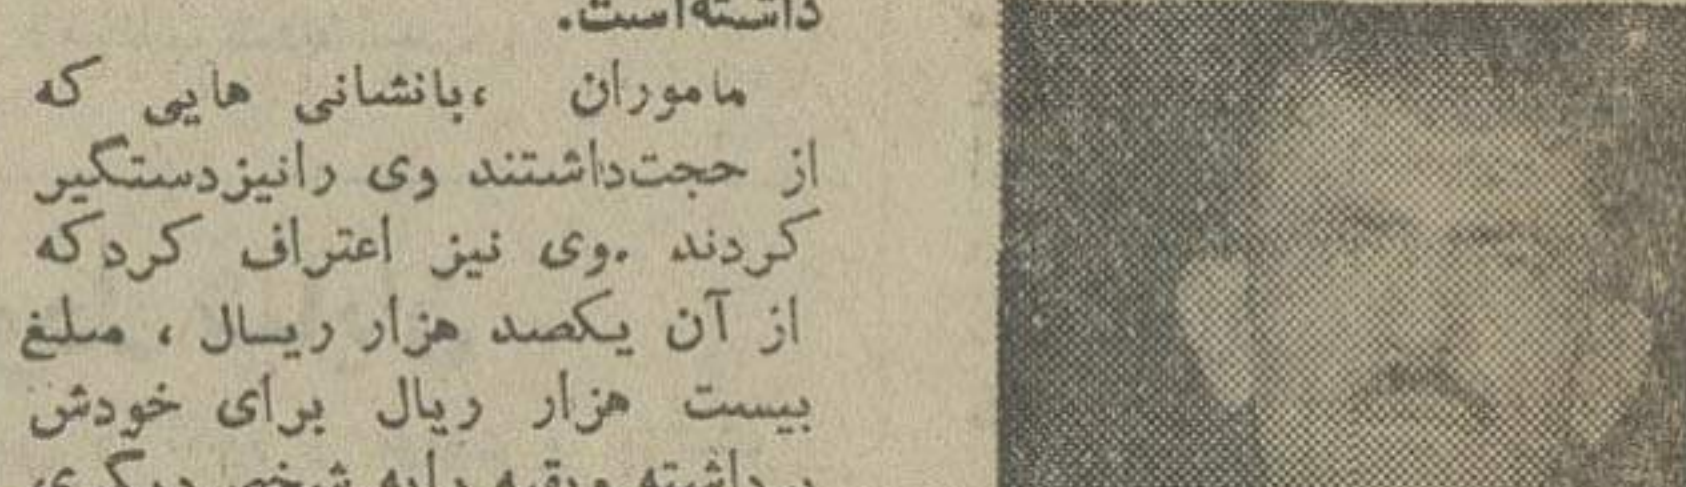 داشته‌است.
ماموران ،بانشانی هایی که
از حجت‌داشتند وی رانیزدستگیر
کردند .وی نیز اعتراف کردکه
از آن یکصد هزار ریسال ، مبلغ
بیست هزار ریال برای خودش
برداشته وبقیه رابه شخص دیگری